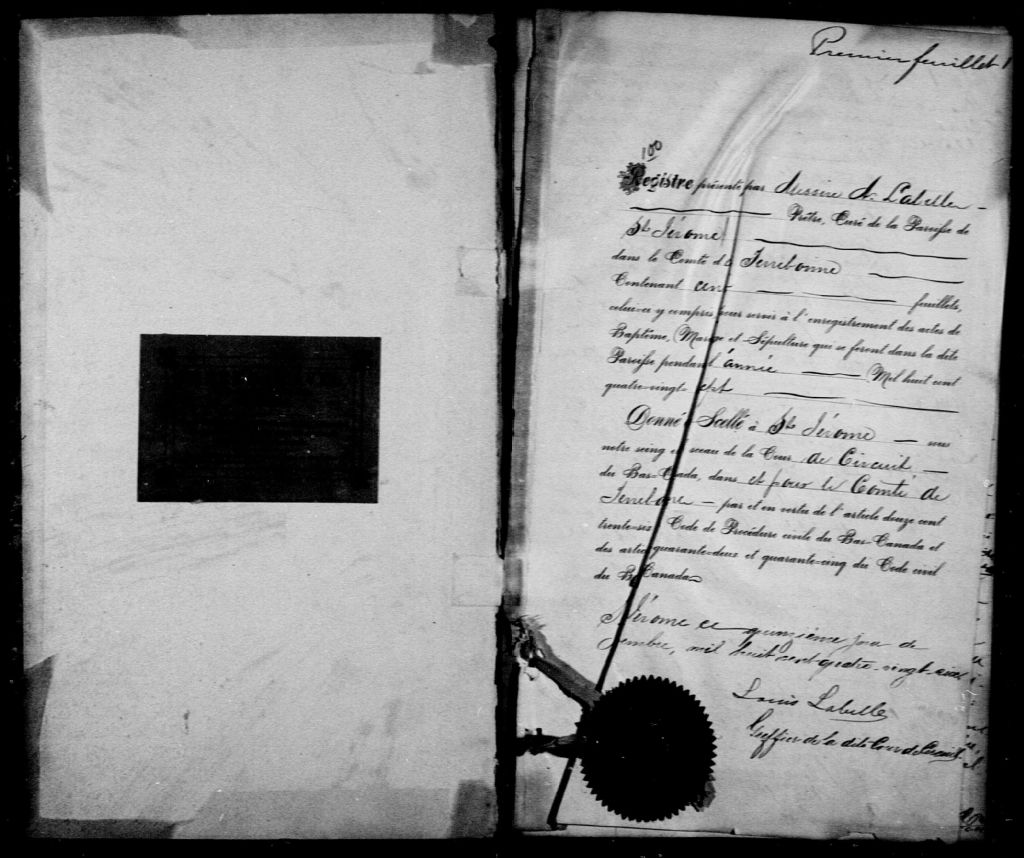 Premier feuillet 1
100
Registre présenté par Messire A. Labelle
Prêtre, Curé de la Paroisse de
St Jérome
dans le Comté de Terrebonne
Contenant cent feuillets,
celui-ci y compris pour servir à l'enregistrement des actes de
Baptême, Mariage et Sépulture qui se feront dans la dite
Paroisse pendant l'année Mil huit cent
quatre-vingt
Donné & Scellé à St Jérome sous
notre seing et sceau de la Cour de Circuit
du Bas-Canada, dans et pour le Comté de
Terrebonne par et en vertu de l'article douze cent
trente-six Code de Procédure civile du Bas-Canada et
des articles quarante-deux et quarante-cinq du Code civil
du Bas Canada
Jérome ce quinzieme jour de
mil huit cent quatre-vingt
Louis Labelle
Greffier de la dite Cour de Circuit